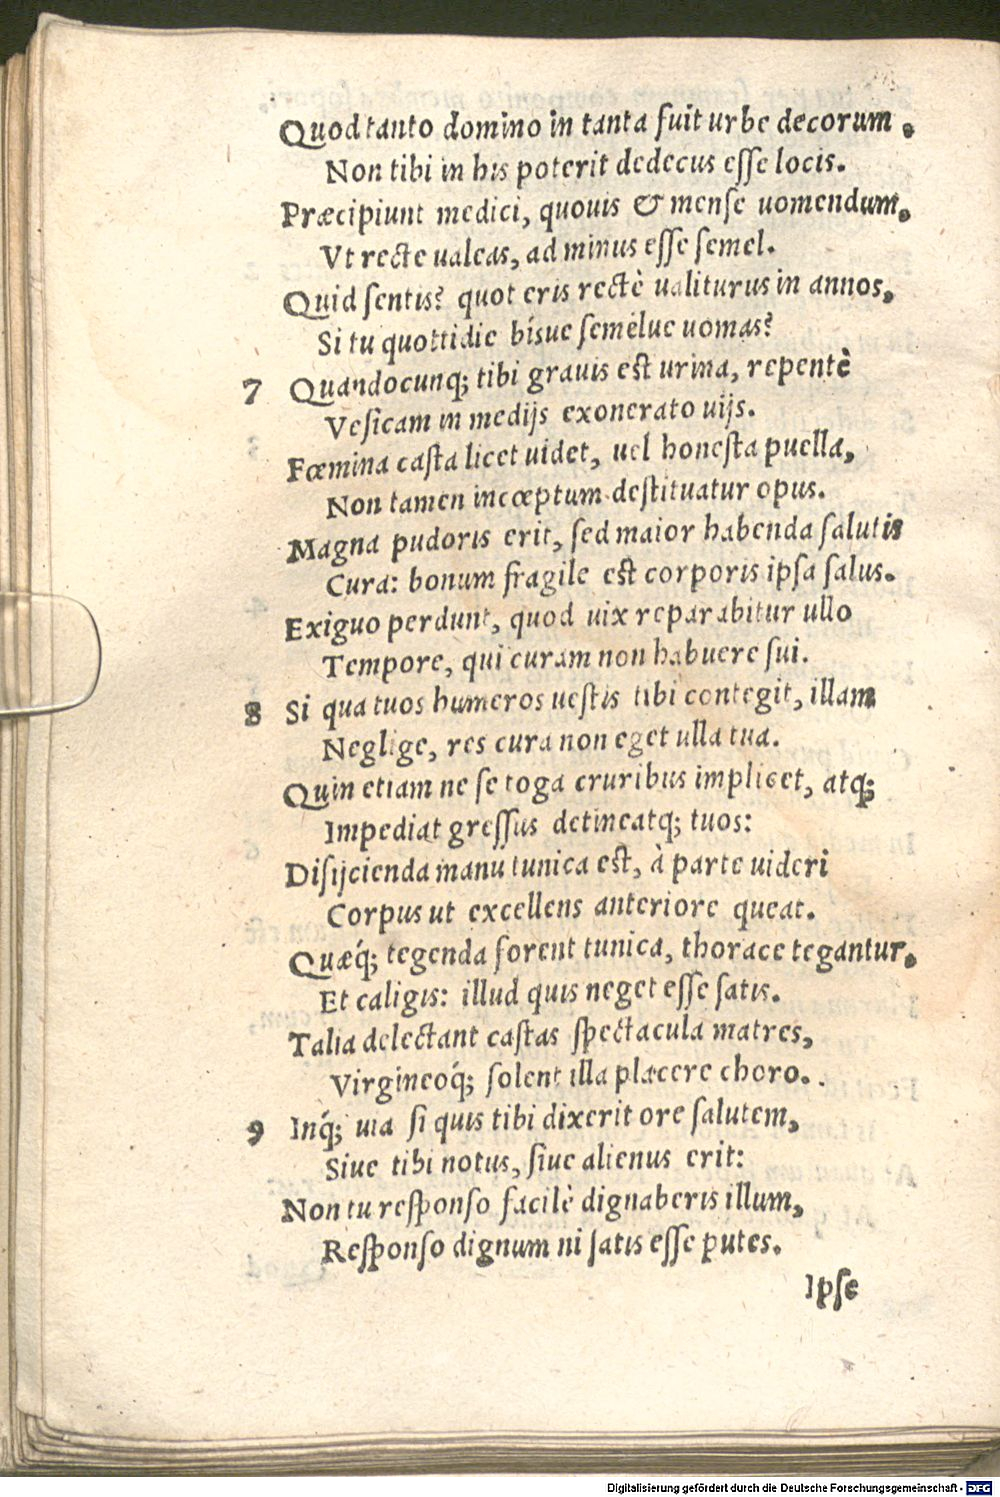 Quod tanto domino in tanta fuit urbe decorum.
Non tibi in his poterit dedecus esse locis.
Præcipiunt medici, quouis & mense uomendum,
Vt recte ualeas, ad minus esse semel.
Quid sentis? quot eris rectè ualiturus in annos,
Si tu quottidie bísue semélue uomas?
7 Quandocunq; tibi grauis est urina, repentè
Vesicam in medijs exonerato uijs.
Fœmina casta licet uidet, uel honesta puella,
Non tamen incœptum destituatur opus.
Magna pudoris erit, sed maior habenda salutis
Cura: bonum fragile est corporis ipsa salus.
Exiguo perdunt, quod uix reparabitur ullo
Tempore, qui curam non habuere sui.
8 Si qua tuos humeros uestis tibi contegit, illam
Neglige, res cura non eget ulla tua.
Quin etiam ne se toga cruribus implicet, atq;
Impediat gressus detineatq; tuos:
Disijcienda manu tunica est, à parte uideri
Corpus ut excellens anteriore queat.
Quæq́; tegenda forent tunica, thorace tegantur,
Et caligis: illud quis neget esse satis.
Talia delectant castas spectacula matres,
Virgineoq́; solent illa placere choro.
9 Inq́; uia si quis tibi dixerit ore salutem,
Siue tibi notus, siue alienus erit:
Non tu responso facilè dignaberis illum,
Responso dignum ni satis esse putes.
Ipse
Digitalisierung gefördert durch die Deutsche Forschungsgemeinschaft - DFG